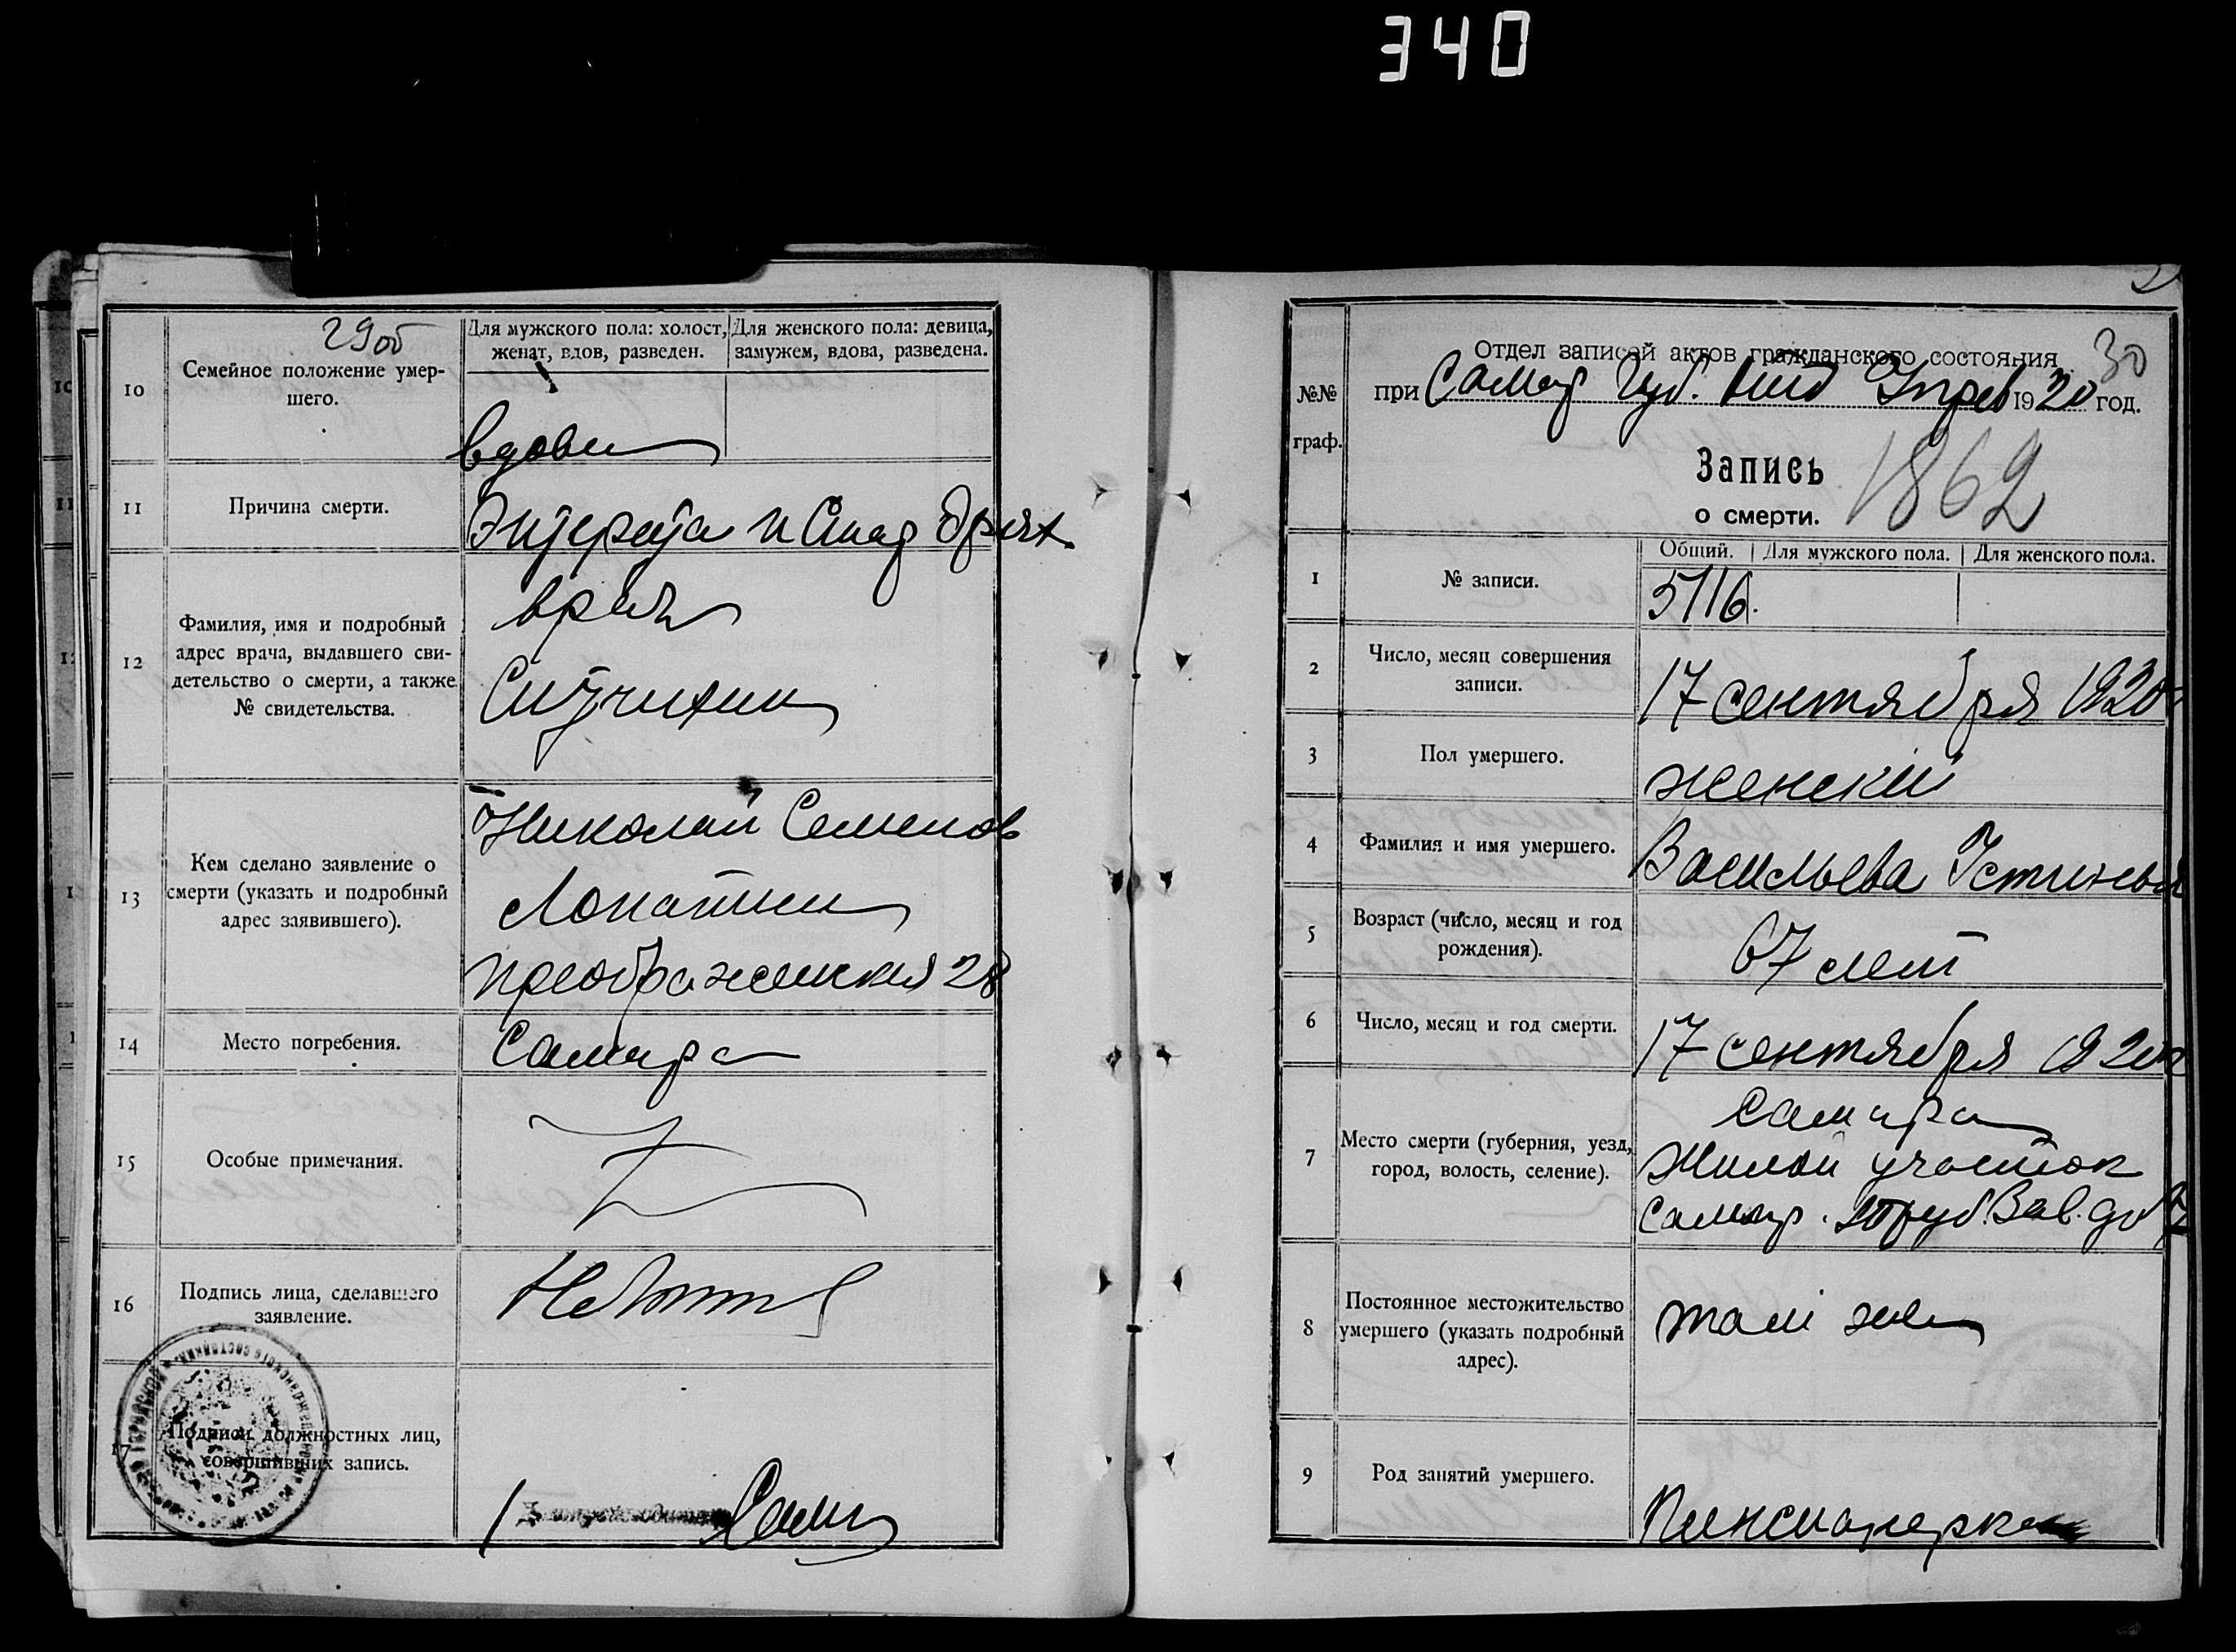 340
29об
10
Семейное положение умер-
шего.
Для мужского пола: холост,
женат, вдов, разведен.
Для женского пола: девица,
замужем, вдова, разведена.
вдова
11
Причина смерти.
Энтерита и Стар дрях.
12
Фамилия, имя и подробный
адрес врача, выдавшего сви-
детельство о смерти, а также
№ свидетельства.
врач
13
Кем сделано заявление о
смерти (указать и подробный
адрес заявившего).
Николай Семенов
Лопатин
преображенская 28
14
Место погребения.
Самара
15
Особые примечания.
16
Подпись лица, сделавшего
заявление.
17
Подписи должностных лиц,
совершивших запись.
30
№№
граф.
Отдел записей актов гражданского состояния
при Самар Губ. 1920 год.
Запись
о смерти.
1862
1
№ записи.
Общий. Для мужского пола. Для женского пола.
5116.
2
Число, месяц совершения
записи.
17 сентября 1920
3
Пол умершего.
женский
4
Фамилия и имя умершего.
Васильева Устинья
5
Возраст (число, месяц и год
рождения).
67 лет
6
Число, месяц и год смерти.
17 сентября 1920
7
Место смерти (губерния, уезд,
город, волость, селение).
Самара
Жилой участок
Самар. Труб. Зав. д
8
Постоянное местожительство
умершего (указать подробный
адрес).
там же
9
Род занятий умершего.
Пенсионерка